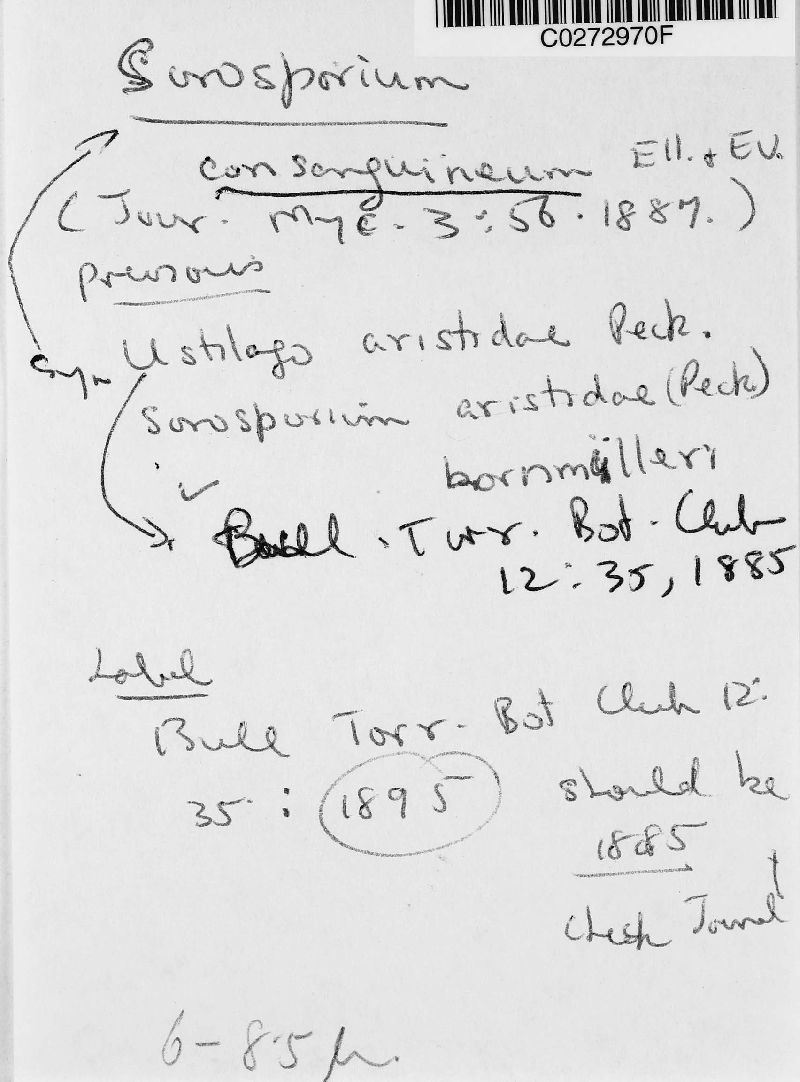 C0272970F
Sorosporium
consanguineum Ell. & Ev.
(Jour. Myc. 3:56. 1887.)
previous
Syn Ustilago aristidae Peck.
Sorosporium aristidae (Peck)
bornmülleri
✓
Bull. Torr. Bot. Club
12:35, 1885
Label
Bull Torr. Bot Club 12:
35: 1895 should be
1885
Check Journal
6-8.5 μ.